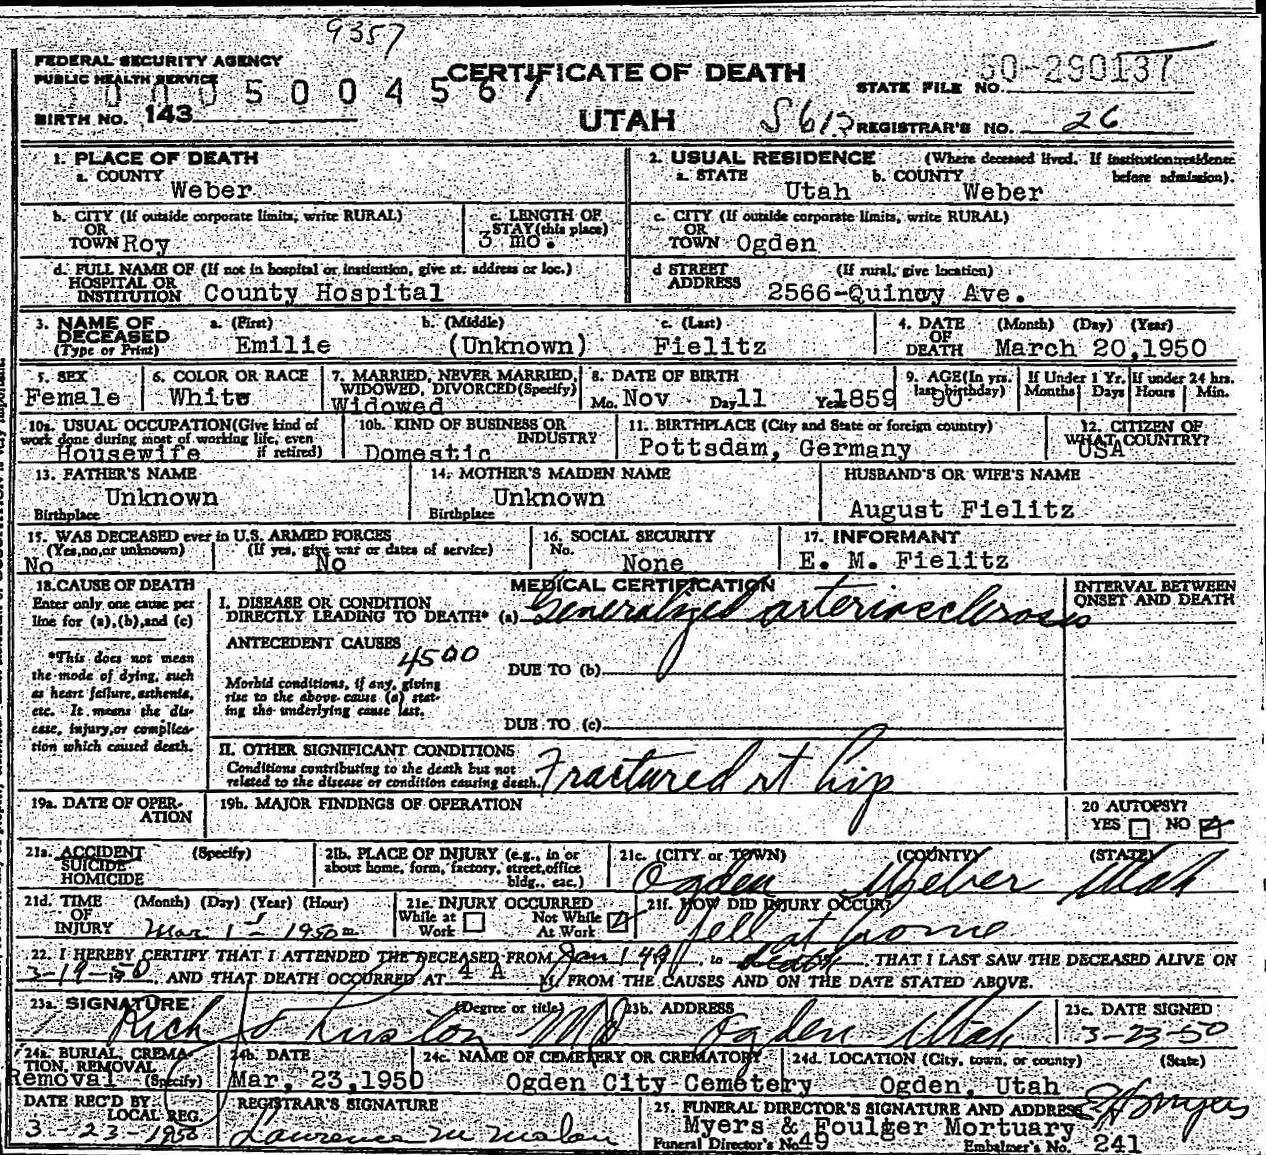 9357
FEDERAL SECURITY AGENCY
PUBLIC HEALTH SERVICE
CERTIFICATE OF DEATH
50-290137
STATE FILE NO.
BIRTH NO. 143
UTAH
S613 REGISTRAR'S NO. 26
1. PLACE OF DEATH
a. COUNTY
Weber
2. USUAL RESIDENCE (Where deceased lived. If institution: residence before admission).
a. STATE Utah b. COUNTY Weber
b. CITY (If outside corporate limits, write RURAL)
OR
TOWN Roy
c. LENGTH OF STAY (this place)
3 mo.
c. CITY (If outside corporate limits, write RURAL)
OR
TOWN Ogden
d. FULL NAME OF (If not in hospital or institution, give st. address or loc.)
HOSPITAL OR
INSTITUTION County Hospital
d STREET (If rural, give location)
ADDRESS 2566-Quincy Ave.
3. NAME OF DECEASED (Type or Print)
a. (First) b. (Middle) c. (Last)
Emilie (Unknown) Fielitz
4. DATE OF DEATH (Month) (Day) (Year)
March 20,1950
5. SEX
Female
6. COLOR OR RACE
White
7. MARRIED, NEVER MARRIED, WIDOWED, DIVORCED (Specify)
Widowed
8. DATE OF BIRTH
Mo. Nov Day 11 Year 1859
9. AGE (In yrs. last birthday)
90
If Under 1 Yr. Months Days
If under 24 hrs. Hours Min.
10a. USUAL OCCUPATION (Give kind of work done during most of working life, even if retired)
Housewife
10b. KIND OF BUSINESS OR INDUSTRY?
Domestic
11. BIRTHPLACE (City and State or foreign country)
Pottsdam, Germany
12. CITIZEN OF WHAT COUNTRY?
USA
13. FATHER'S NAME
Unknown
Birthplace
14. MOTHER'S MAIDEN NAME
Unknown
Birthplace
HUSBAND'S OR WIFE'S NAME
August Fielitz
15. WAS DECEASED ever in U.S. ARMED FORCES
(Yes, no, or unknown) (If yes, give war or dates of service)
No No
16. SOCIAL SECURITY
No. None
17. INFORMANT
E. M. Fielitz
18. CAUSE OF DEATH
Enter only one cause per line for (a), (b), and (c)
*This does not mean the mode of dying, such as heart failure, asthenia, etc. It means the disease, injury, or complication which caused death.
MEDICAL CERTIFICATION
INTERVAL BETWEEN ONSET AND DEATH
I. DISEASE OR CONDITION
DIRECTLY LEADING TO DEATH* (a) Generalized arteriosclerosis
ANTECEDENT CAUSES
4500
DUE TO (b)
Morbid conditions, if any, giving rise to the above cause (a) stating the underlying cause last.
DUE TO (c)
II. OTHER SIGNIFICANT CONDITIONS
Conditions contributing to the death but not related to the disease or condition causing death.
Fractured rt hip
19a. DATE OF OPERATION
19b. MAJOR FINDINGS OF OPERATION
20 AUTOPSY?
YES NO
21a. ACCIDENT (Specify)
SUICIDE
HOMICIDE
21b. PLACE OF INJURY (e.g., in or about home, form, factory, street, office bldg., eac.)
21c. (CITY or TOWN) (COUNTY) (STATE)
Ogden Weber Utah
21d. TIME OF INJURY (Month) (Day) (Year) (Hour)
Mar 1 - 1950 m
21e. INJURY OCCURRED
While at Work Not While At Work
21f. HOW DID INJURY OCCUR?
fell at home
22. I HEREBY CERTIFY THAT I ATTENDED THE DECEASED FROM Jan 1 49, to death, THAT I LAST SAW THE DECEASED ALIVE ON
3-19-50, AND THAT DEATH OCCURRED AT 4 A M, FROM THE CAUSES AND ON THE DATE STATED ABOVE.
23a. SIGNATURE (Degree or title)
Rich MD
23b. ADDRESS
Ogden Utah
23c. DATE SIGNED
3-23-50
24a. BURIAL, CREMATION, REMOVAL (Specify)
Removal
24b. DATE
Mar, 23,1950
24c. NAME OF CEMETERY OR CREMATORY
Ogden City Cemetery
24d. LOCATION (City, town, or county) (State)
Ogden, Utah
DATE REC'D BY LOCAL REG.
3-23-1950
REGISTRAR'S SIGNATURE
Laurence M Malan
25. FUNERAL DIRECTOR'S SIGNATURE AND ADDRESS
Myers & Foulger Mortuary
Funeral Director's No. 49 Embalmer's No. 241